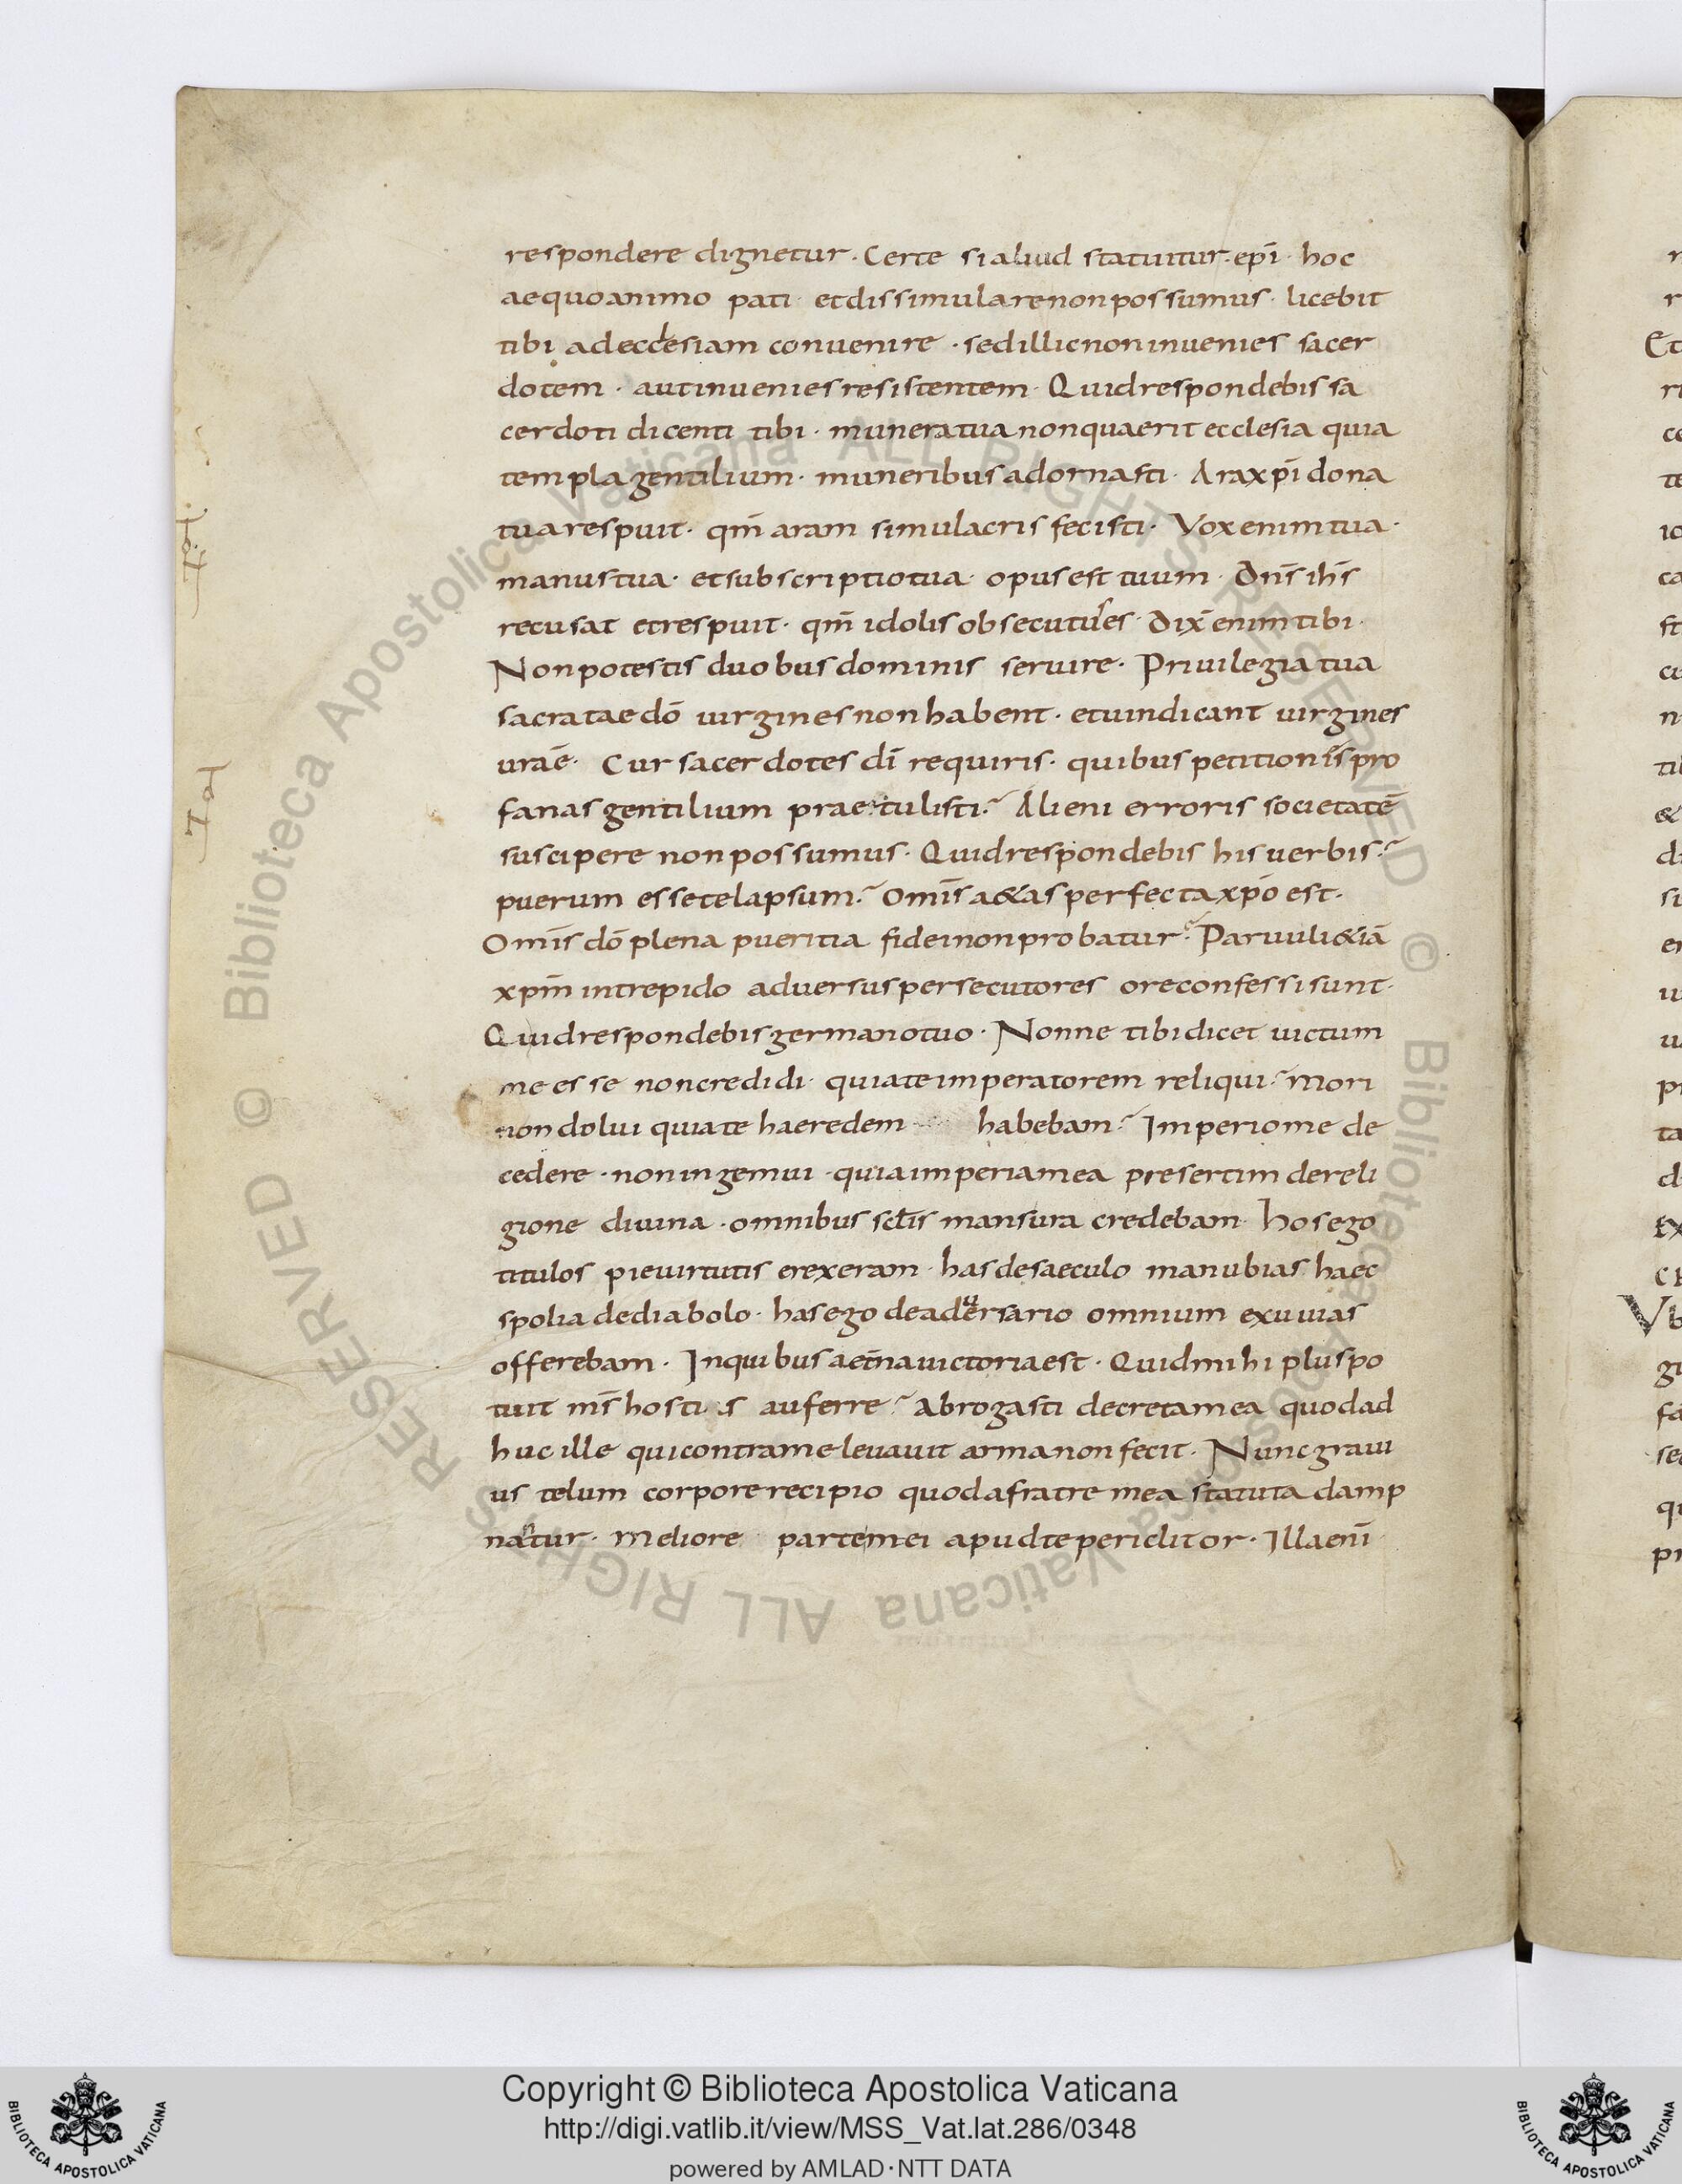 respondere dignetur. Certe si aliud statuitur. epī. hoc
aequo animo pati. et dissimulare non possumus. licebit
tibi ad ecclesiam convenire. sed illic non invenies sacer
dotem. aut invenies resistentem. Quid respondebis sa
cerdoti dicenti tibi. munera tua non quaerit ecclesia quia
templa gentilium. muneribus adornasti. Ara xpī dona
tua respuit. qm̄ aram simulacris fecisti. Vox enim tua.
manus tua. et subscriptio tua. opus est tuum. Dn̄s ih̄s
recusat et respuit. qm̄ idolis obsecutus es. Dix̄ enim tibi.
Non potestis duobus dominis servire. Privilegia tua
sacratae dō virgines non habent. et vindicant virgines
vrāe. Cur sacerdotes dī requiris. quibus petitiones pro
fanas gentilium praetulisti? Alieni erroris societatē
suscipere non possumus. Quid respondebis his verbis?
puerum esse te lapsum? Omīs a&as perfecta xpō est.
Omīs dō plena pueritia fidei non probatur? Parvuli &iā
xpm̄ intrepido adversus persecutores ore confessi sunt.
Quid respondebis germano tuo. Nonne tibi dicet victum
me esse non credidi. quia te imperatorem reliqui? Mori
non dolui quia te haeredem habebam? Imperio me de
cedere. non ingemui. quia imperia mea presertim de reli
gione divina. omnibus sc̄lis mansura credebam. Hos ego
titulos pie virtutis erexeram. has de saeculo manubias haec
spolia de diabolo. has ego de adversario omnium exuvias
offerebam. In quibus aet̄na victoria est. Quid mihi plus po
tuit ms̄ hostis auferre? Abrogasti decreta mea quod ad
huc ille qui contra me levavit arma non fecit. Nunc gravi
us telum corpore recipio quod a fratre mea statuta damp
natur. Meliore parte mei apud te periclitor. Illa enī
© Biblioteca Apostolica Vaticana ALL RIGHTS RESERVED © Biblioteca Apostolica Vaticana ALL RIGHTS RESERVED
Copyright © Biblioteca Apostolica Vaticana
http://digi.vatlib.it/view/MSS_Vat.lat.286/0348
powered by AMLAD·NTT DATA
BIBLIOTECA APOSTOLICA VATICANA
BIBLIOTECA APOSTOLICA VATICANA